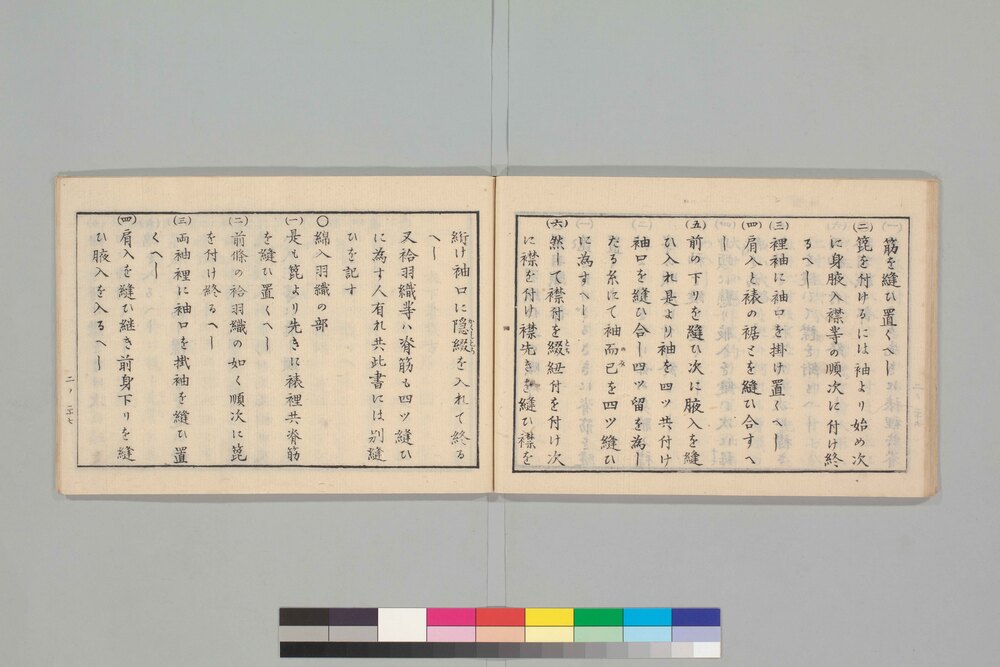 筋を縫ひ置くへし
(二)箆を付けるには袖より始め次
に身腋入襟等の順次に付け終
るへし
(三)裡袖に袖口を掛け置くへし
(四)肩入と裱の裾とを縫ひ合すへ
し
(五)前の下りを縫ひ次に腋入を縫
ひ入れ是より袖を四ツ共付け
袖口を縫ひ合し四ツ留を為し
たる糸にて袖而已を四ツ縫ひ
に為すへし
(六)然して襟付を綴紐付を付け次
に襟を付け襟先きを縫ひ襟を
絎け袖口に隠綴を入れて終る
へし
又袷羽織等ハ脊筋も四ツ縫ひ
に為す人有れ共此書には别縫
ひを記す
〇綿入羽織の部
(一)是も箆より先きに裱裡共脊筋
を縫ひ置くへし
(二)前條の袷羽織の如く順次に箆
を付け終るへし
(三)両袖裡に袖口を掛袖を縫ひ置
くへし
(四)肩入を縫ひ継き前身下りを縫
ひ腋入を入るへし
二ノ二十七